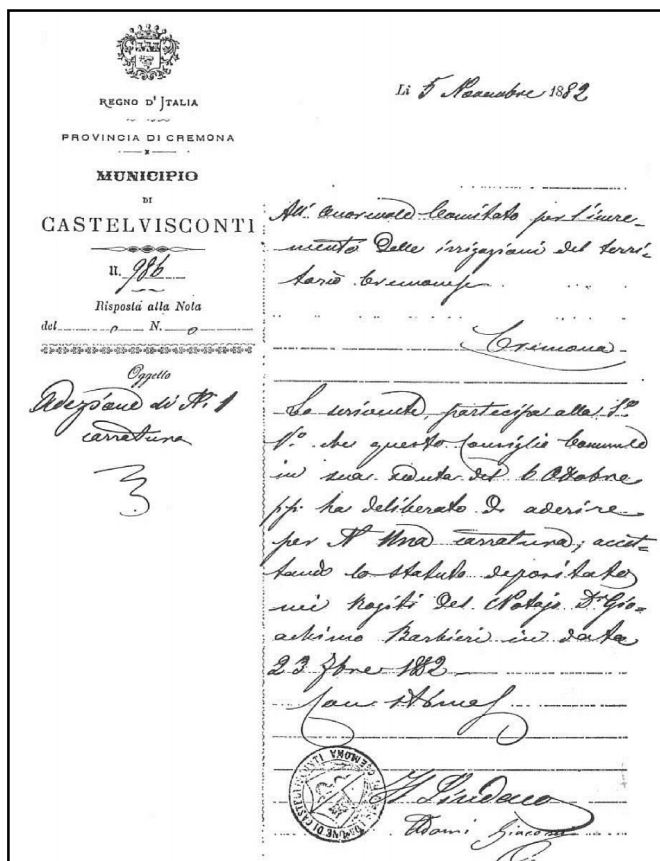 REGNO D'ITALIA
PROVINCIA DI CREMONA
MUNICIPIO
DI
CASTELVISCONTI
N. 986
Risposta alla Nota
del o N. o
Oggetto
Adezione di N. 1
carratura
Li 5 Novembre 1882
All' onorevole Comitato per l'incre-
mento delle irrigazioni del terri-
torio Cremonese
Cremona
Lo scrivente partecipa alla
che questo Consiglio Comunale
in sua seduta del 6 Ottobre
pp. ha deliberato di aderire
per N. Una carratura, accet-
tando lo statuto depositato
nei Rogiti del Notajo Dr. Gio-
achimo Barbieri in data
23 7bre 1882
Con stima
Il Sindaco
Adami Giacomo
COMUNE DI CASTELVISCONTI CREMONA